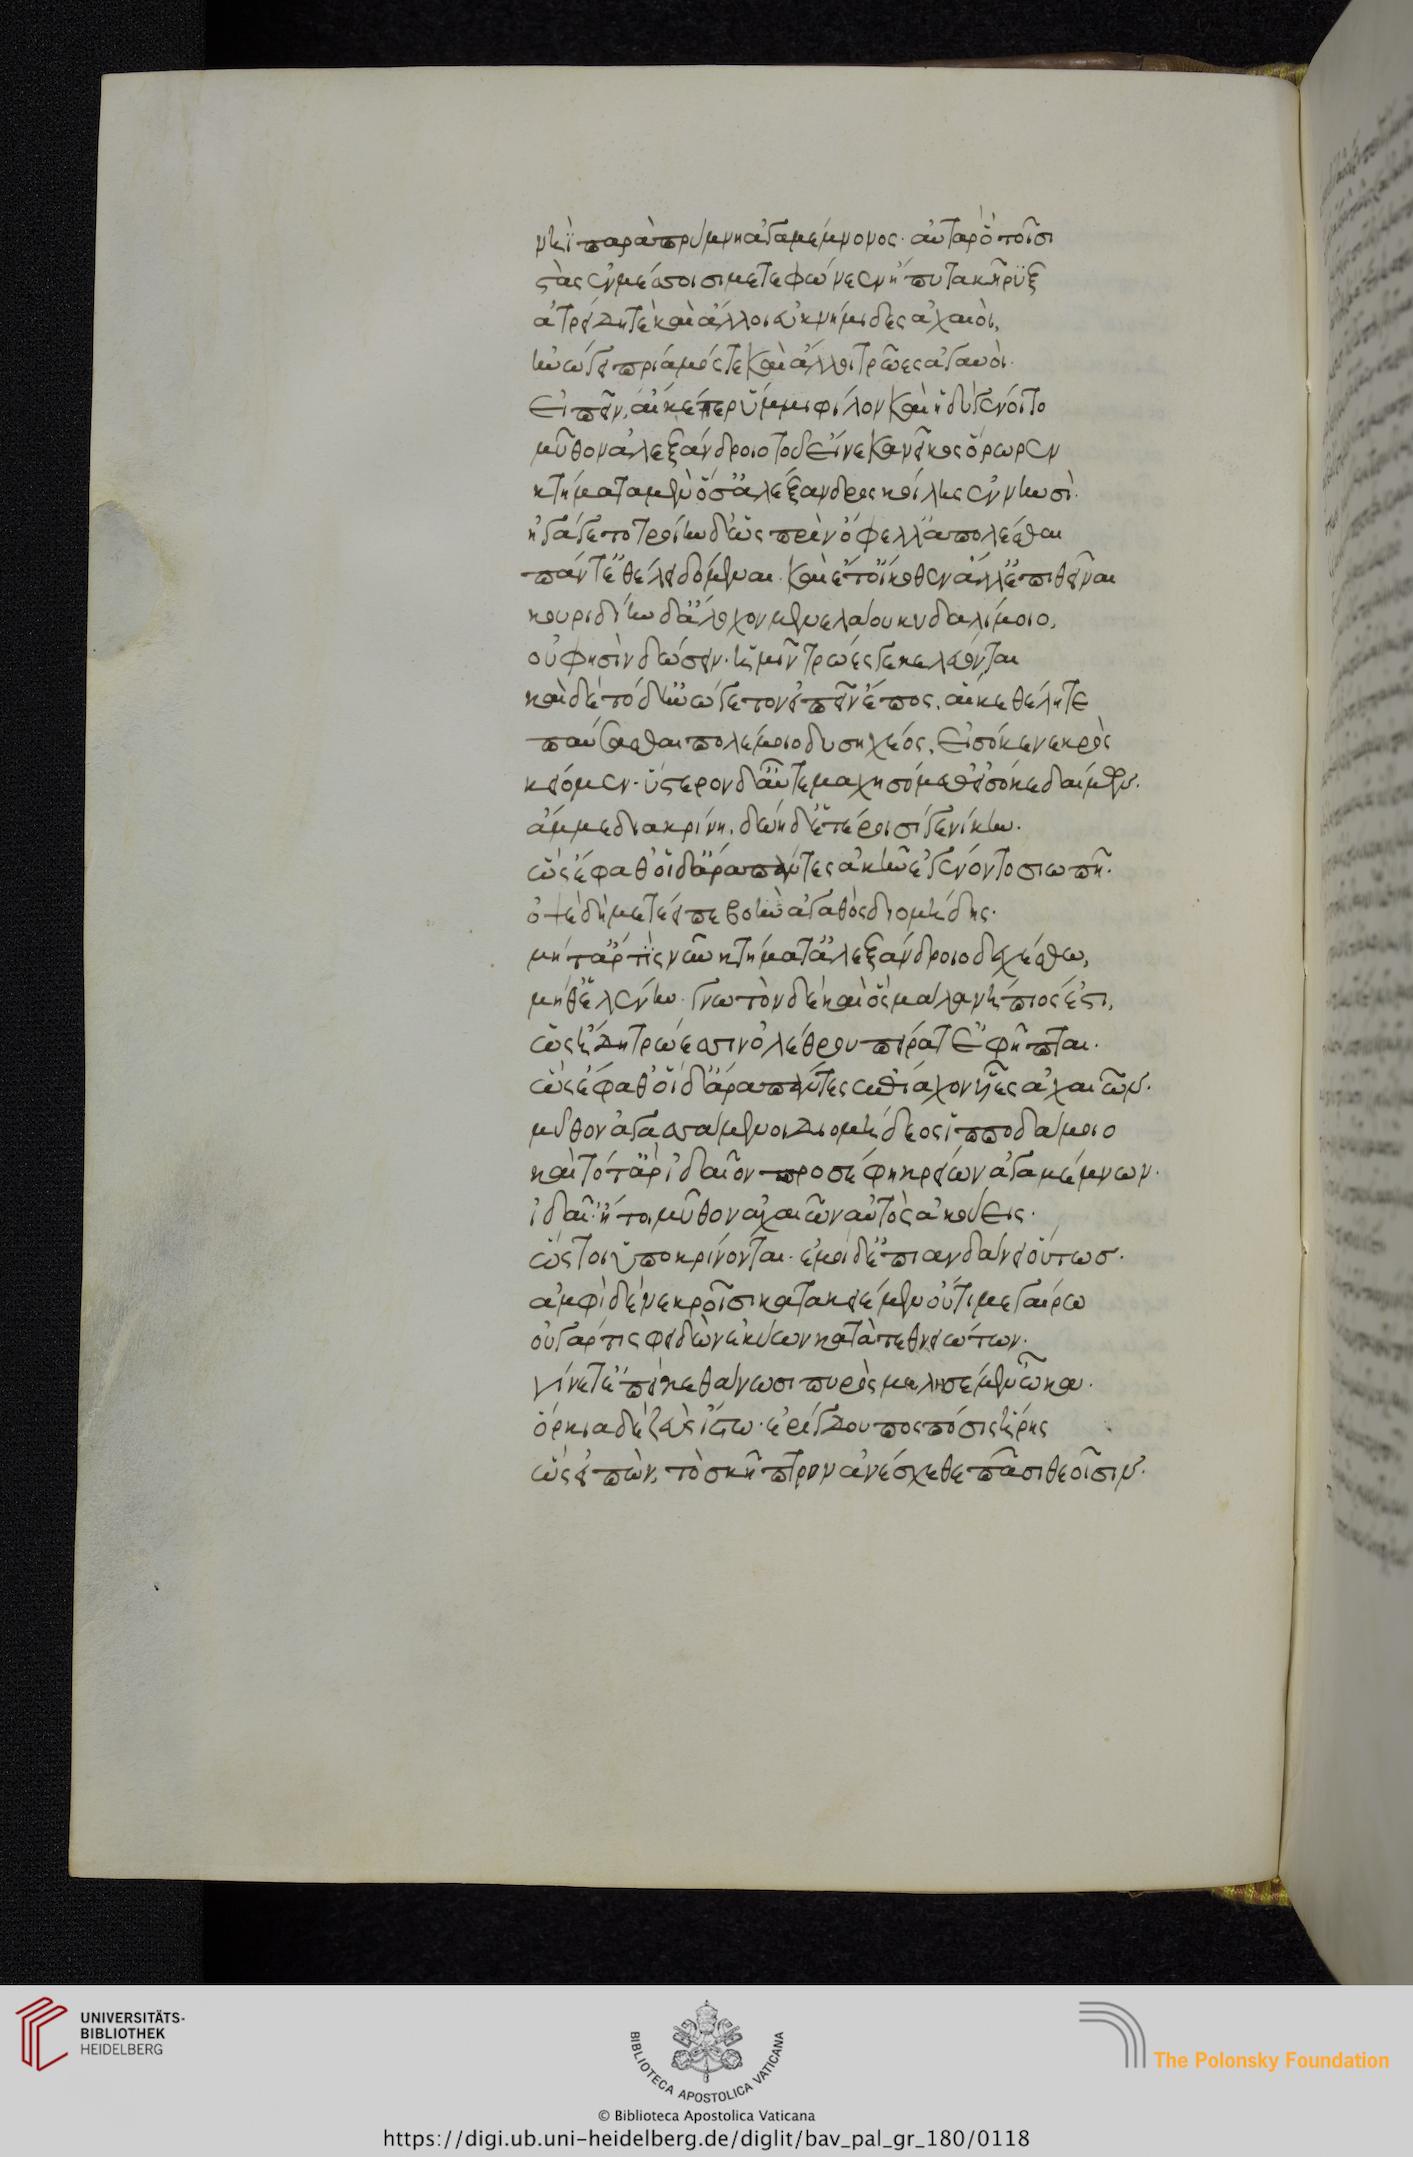 νηῒ παρὰ πρυμνῇ ἀγαμέμνονος· αὐτὰρ ὁ τοῖσι
στὰς ἐν μέσσοισι μετεφώνεεν ἠπύτα κῆρυξ
ἀτρείδη τὲ καὶ ἄλλοι ἐϋκνήμιδες ἀχαιοὶ,
ἠνώγει πρίαμός τε καὶ ἄλλοι τρῶες ἀγαυοὶ·
εἰπεῖν, αἴ κέ περ ὔμμι φίλον καὶ ἡδὺ γένοιτο
μῦθον ἀλεξάνδροιο τοῦ εἵνεκα νεῖκος ὄρωρεν
κτήματα μὲν ὅσ' ἀλέξανδρος κοίλης ἐν νηυσὶ·
ἠγάγετο τροίην δ' ὡς πρὶν ὄφελλ' ἀπολέσθαι
πάντ' ἐθέλει δόμεναι· καὶ ἔτ' οἴκοθεν ἄλλ' ἐπιθεῖναι
κουριδίην δ' ἄλοχον μενελάου κυδαλίμοιο,
οὔ φησὶν δώσειν· ἦ μὴν τρῶές γε κέλονται
καὶ δὲ τόδ' ἠνώγετον εἰπεῖν ἔπος, αἴ κε θέλητε
παύσασθαι πολέμοιο δυσηχέος, εἰσόκε νεκροὺς
κείομεν· ὕστερον δ' αὖτε μαχησόμεθ' εἰσόκε δαίμων·
ἄμμε διακρίνη, δώη δ' ἑτέροισί γε νίκην·
ὣς ἔφαθ' οἱ δ' ἄρα πάντες ἀκὴν ἐγένοντο σιωπῇ·
ὀτὲ δὴ μετέειπε βοὴν ἀγαθὸς διομήδης·
μήτ' ἄρ τις νῦν κτήματ' ἀλεξάνδροιο δεχέσθω,
μήθ' ἑλένην· γνωτὸν δὲ καὶ ὃς μάλα νήπιός ἐστι,
ὡς ἤδη τρώεσσιν ὀλέθρου πείρατ' ἐφῆπται·
ὣς ἔφαθ' οἱ δ' ἄρα πάντες ἐπίαχον υἷες ἀχαιῶν·
μῦθον ἀγασσάμενοι διομήδεος ἱπποδάμοιο
καὶ τότ' ἄρ' ἰδαῖον προσέφη κρείων ἀγαμέμνων·
ἰδαῖ' ἤτοι μῦθον ἀχαιῶν αὐτὸς ἀκούεις·
ὥς τοι ὑποκρίνονται· ἐμοὶ δ' ἐπιανδάνει οὕτως·
ἀμφὶ δὲ νεκροῖσι κατακειέμεν οὔτι μεγαίρω
οὐ γάρ τις φειδὼ νεκύων κατὰ τεθνειώτων·
γίνετ' ἐπεί κε θάνωσι πυρὸς μειλισσέμεν ὦκα·
ὅρκια δὲ ζεὺς ἴστω· ἐρίγδουπος πόσις ἥρης
ὣς εἰπὼν, τὸ σκῆπτρον ἀνέσχεθε πᾶσι θεοῖσιν·
UNIVERSITÄTS-
BIBLIOTHEK
HEIDELBERG
BIBLIOTECA APOSTOLICA VATICANA
The Polonsky Foundation
© Biblioteca Apostolica Vaticana
https://digi.ub.uni-heidelberg.de/diglit/bav_pal_gr_180/0118